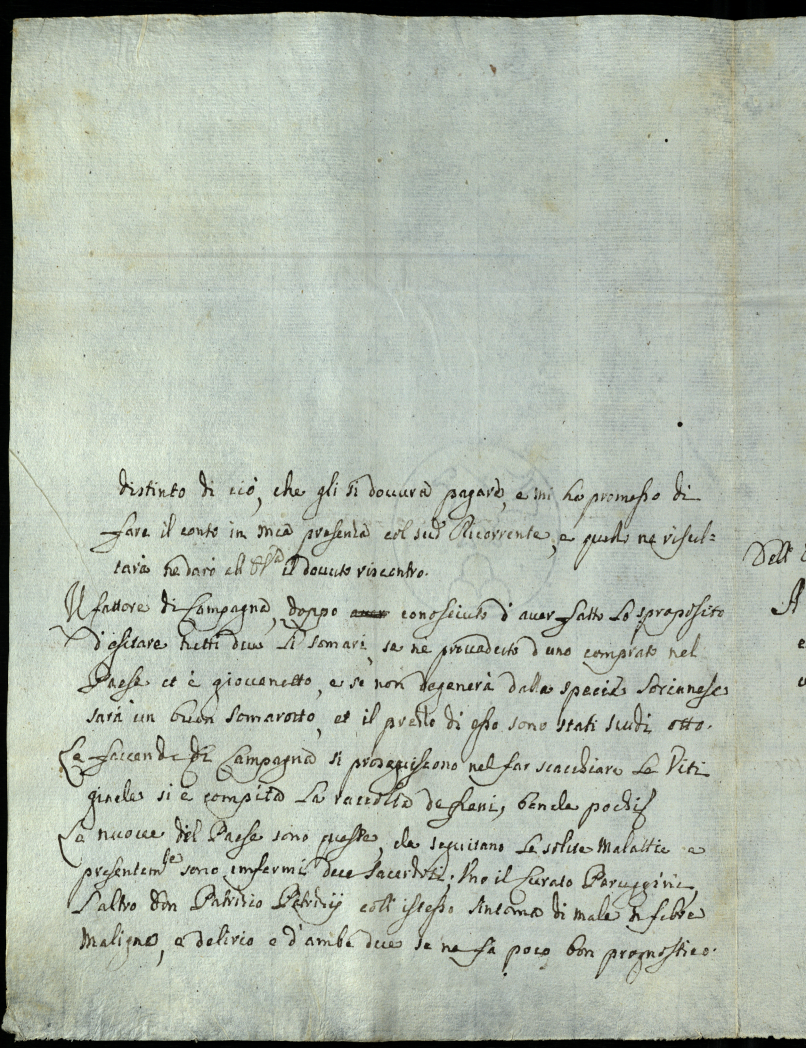 distinto di ciò, che gli si dovverà pagare, e mi ha promesso di
fare il conto in mia presenza col sud.º Ricorrente, e quello ne risul=
tarà ne darò il dovuto riscontro.
Il fattore di Campagna, doppo conosciuto d'aver fatto lo sproposito
d'esitare tutti due li somari, se ne provveduto d'uno comprato nel
Paese et è giovenetto, e se non degenera dalla specie Sorianese
sarà un buon somarotto, et il prezzo di esso sono stati scudi otto.
Le faccende di Campagna si proseguiscono nel far scacchiare le Viti
si è compita la raccolta de fieni, benche pochis
Le nuove del Paese sono queste, che seguitano le solite Malattie e
presentem.te sono infermi due Sacerdoti, Uno il Curato Peruggini,
l'altro Don Patrizio Petrucij coll'istesso Sintoma di male di febre
Maligna, e delirio e d'ambe due se ne fa poco bon prognostico.
Dell'